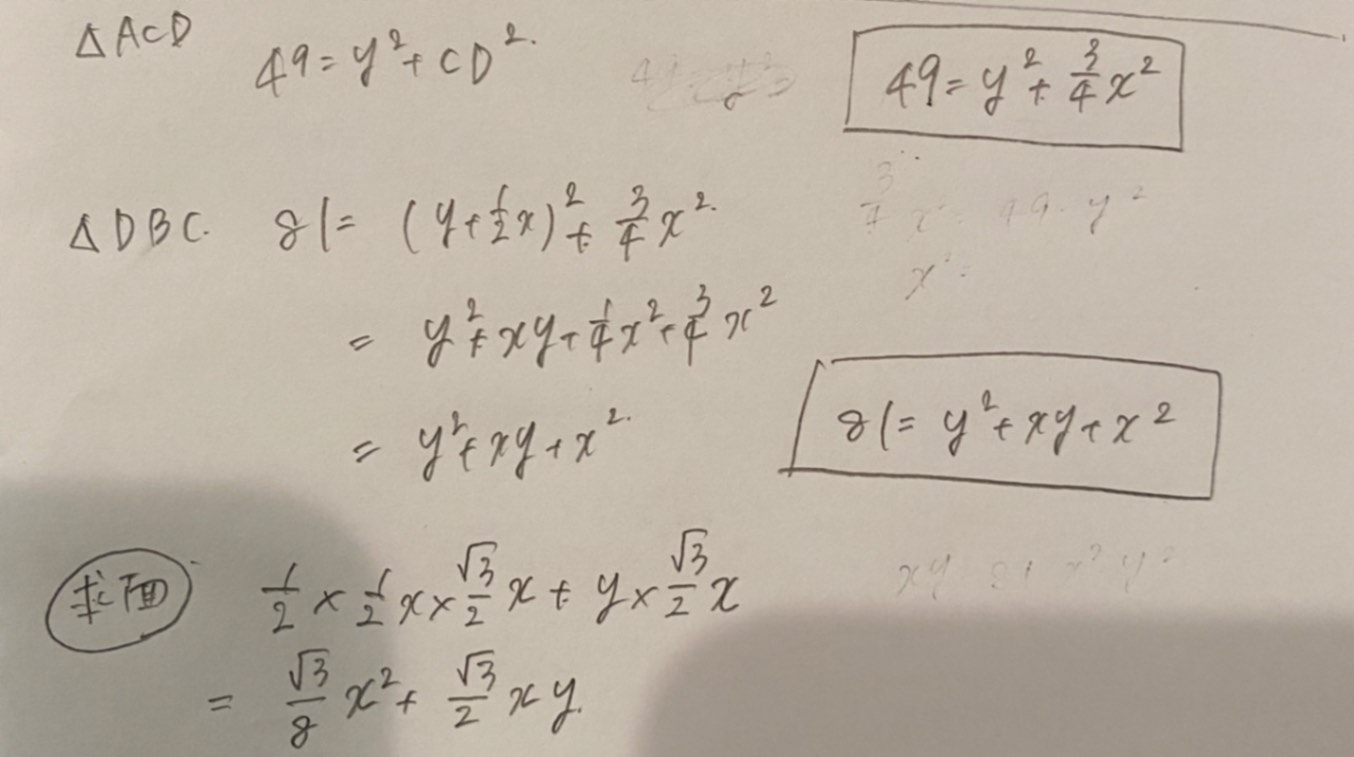 △ACD 49=y²+CD². 49=y²+3/4x²
△DBC. 81=(y+1/2x)²+3/4x².
= y²+xy+1/4x²+3/4x²
= y²+xy+x². 81=y²+xy+x²
求面 1/2×1/2x×√3/2x+y×√3/2x
= √3/8x²+√3/2xy.